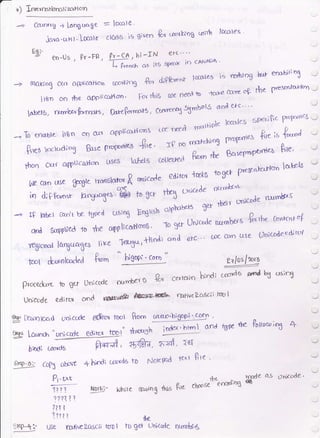 *) Internationalization
→ country + language = locale.
java.util.Locale class is given for working with locales
Eg:- en-US, Fr-FR, Fr-CA, hi-IN etc....
↳ french as its speak in CANADA.
→ making our application working for different locales is nothing but enabling
I18n on the application. For this we need to take care of the presentation
labels, numberformats, Dateformats, currency symbols and etc...
→ To enable I18n on our applications we need multiple locales specific properties
files including Base properties file. If no matching properties file is found
then our application uses labels collected from the Baseproperties file.
we can use google translator & unicode editor tools to get presentation labels
in different languages to get they unicode numbers
→ If label can't be typed using English alphabets get their unicode numbers
and supplied to the applications. To get Unicode numbers for the content of
regional languages like Telugu, Hindi and etc... we can use Unicode editor
tool downloaded from "higopi.com"
procedure to get Unicode numbers for certain hindi words and by using
Unicode editor and native2ascii tool
Download unicode editor tool from www.higopi.com.
Launch "unicode editor tool" through index.html and type the following 4
hindi words
Step-3: Copy above 4 hindi words to Notepad text file.
P1.txt
???? Note:- while saving this file choose the encoding mode as Unicode.
?????
????
?????
Step-4:- use native2ascii tool to get Unicode numbers